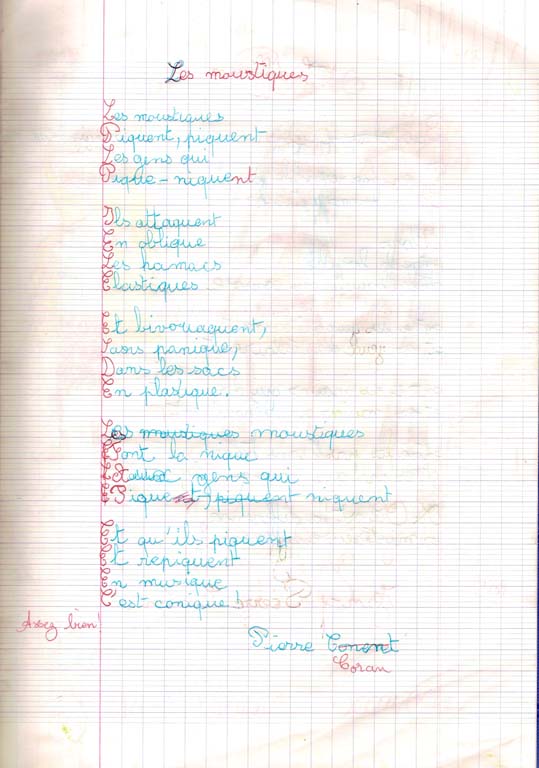 Les moustiques
Les moustiques
Piquent, piquent
Les gens qui
Pique-niquent
Ils attaquent
En oblique
Les hamacs
Elastiques
Et bivouaquent,
Sans panique,
Dans les sacs
En plastique.
Les moustiques moustiques
Font la nique
gens qui
Pique piquent niquent
Et qu'ils piquent
Et repiquent
En musique
C'est conique !
Assez bien!
Pierre Conent
Coran